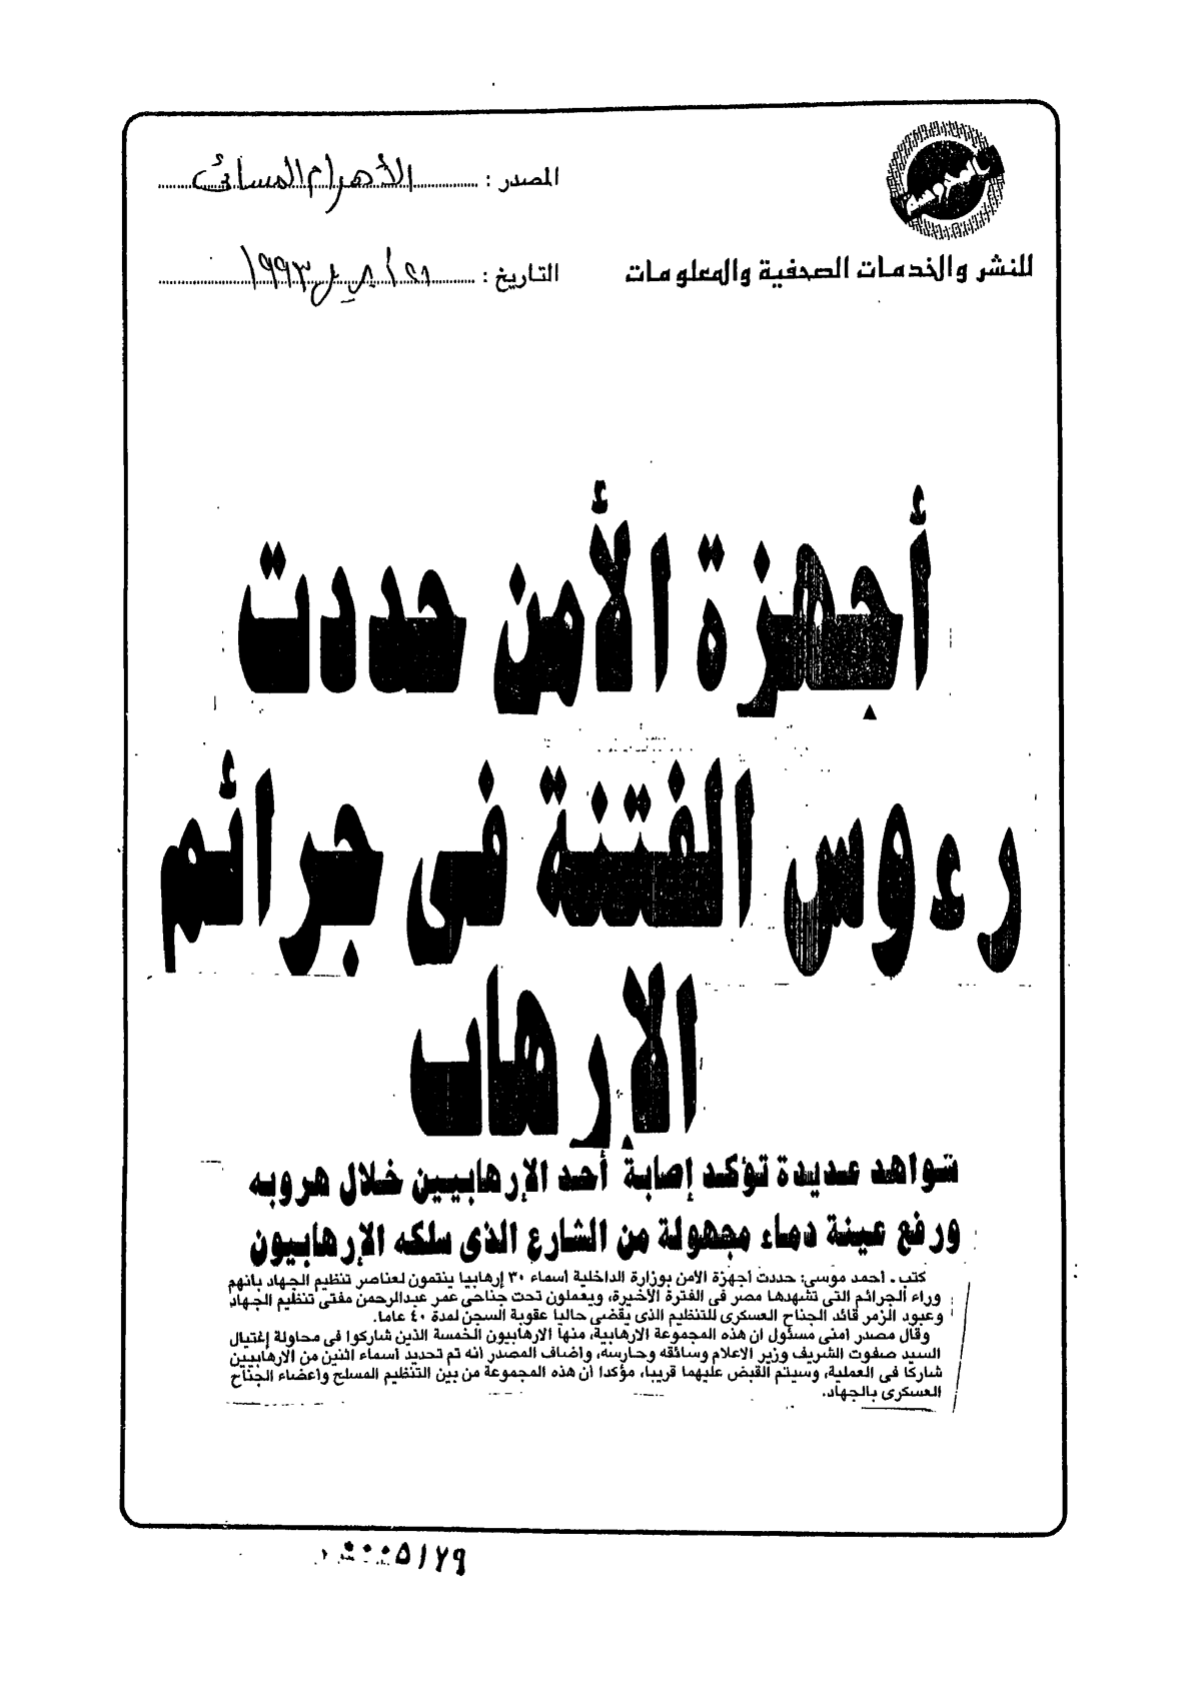 المحروسة
للنشر والخدمات الصحفية والمعلومات
المصدر : الأهرام المسائى
التاريخ : ٢١ ابريل ١٩٩٣
أجهزة الأمن حددت
رءوس الفتنة فى جرائم
الإرهاب
شواهد عديدة تؤكد إصابة أحد الإرهابيين خلال هروبه
ورفع عينة دماء مجهولة من الشارع الذى سلكه الإرهابيون
كتب ـ أحمد موسى: حددت أجهزة الأمن بوزارة الداخلية أسماء ٣٠ إرهابيا ينتمون لعناصر تنظيم الجهاد بانهم
وراء الجرائم التى تشهدها مصر فى الفترة الأخيرة، ويعملون تحت جناحى عمر عبدالرحمن مفتى تنظيم الجهاد
وعبود الزمر قائد الجناح العسكرى للتنظيم الذى يقضى حاليا عقوبة السجن لمدة ٤٠ عاما.
وقال مصدر أمنى مسئول ان هذه المجموعة الارهابية، منها الارهابيون الخمسة الذين شاركوا فى محاولة إغتيال
السيد صفوت الشريف وزير الاعلام وسائقه وحارسه، وأضاف المصدر أنه تم تحديد أسماء اثنين من الارهابيين
شاركا فى العملية، وسيتم القبض عليهما قريبا، مؤكدا أن هذه المجموعة من بين التنظيم المسلح وأعضاء الجناح
العسكرى بالجهاد.